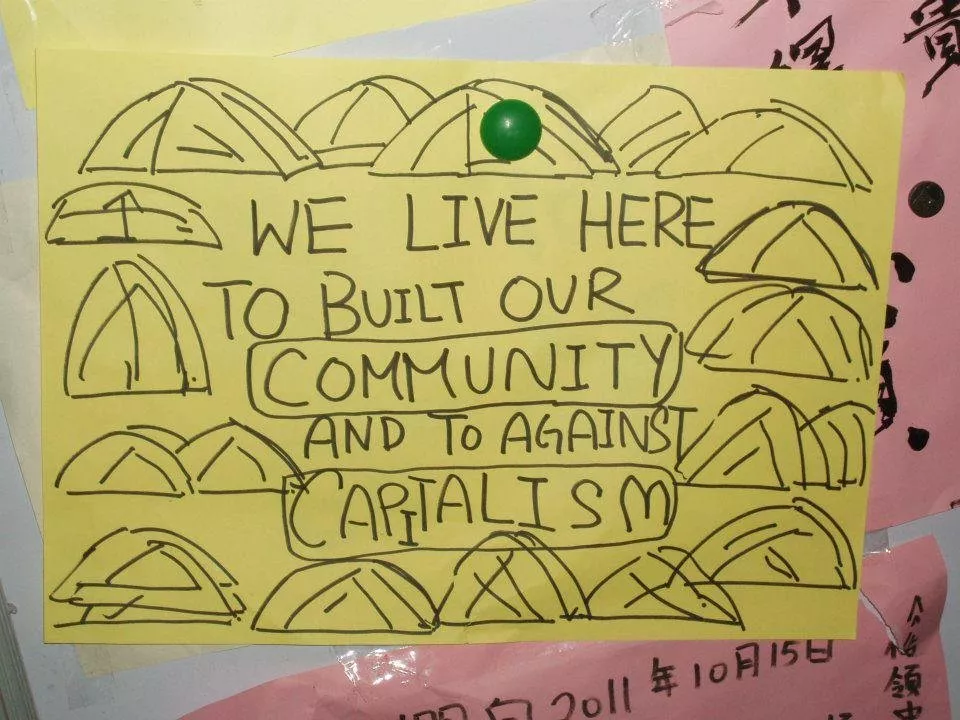 貴
WE LIVE HERE
TO BUILT OUR
COMMUNITY
AND TO AGAINST
CAPITALISM
2011年10月15日
佔領中